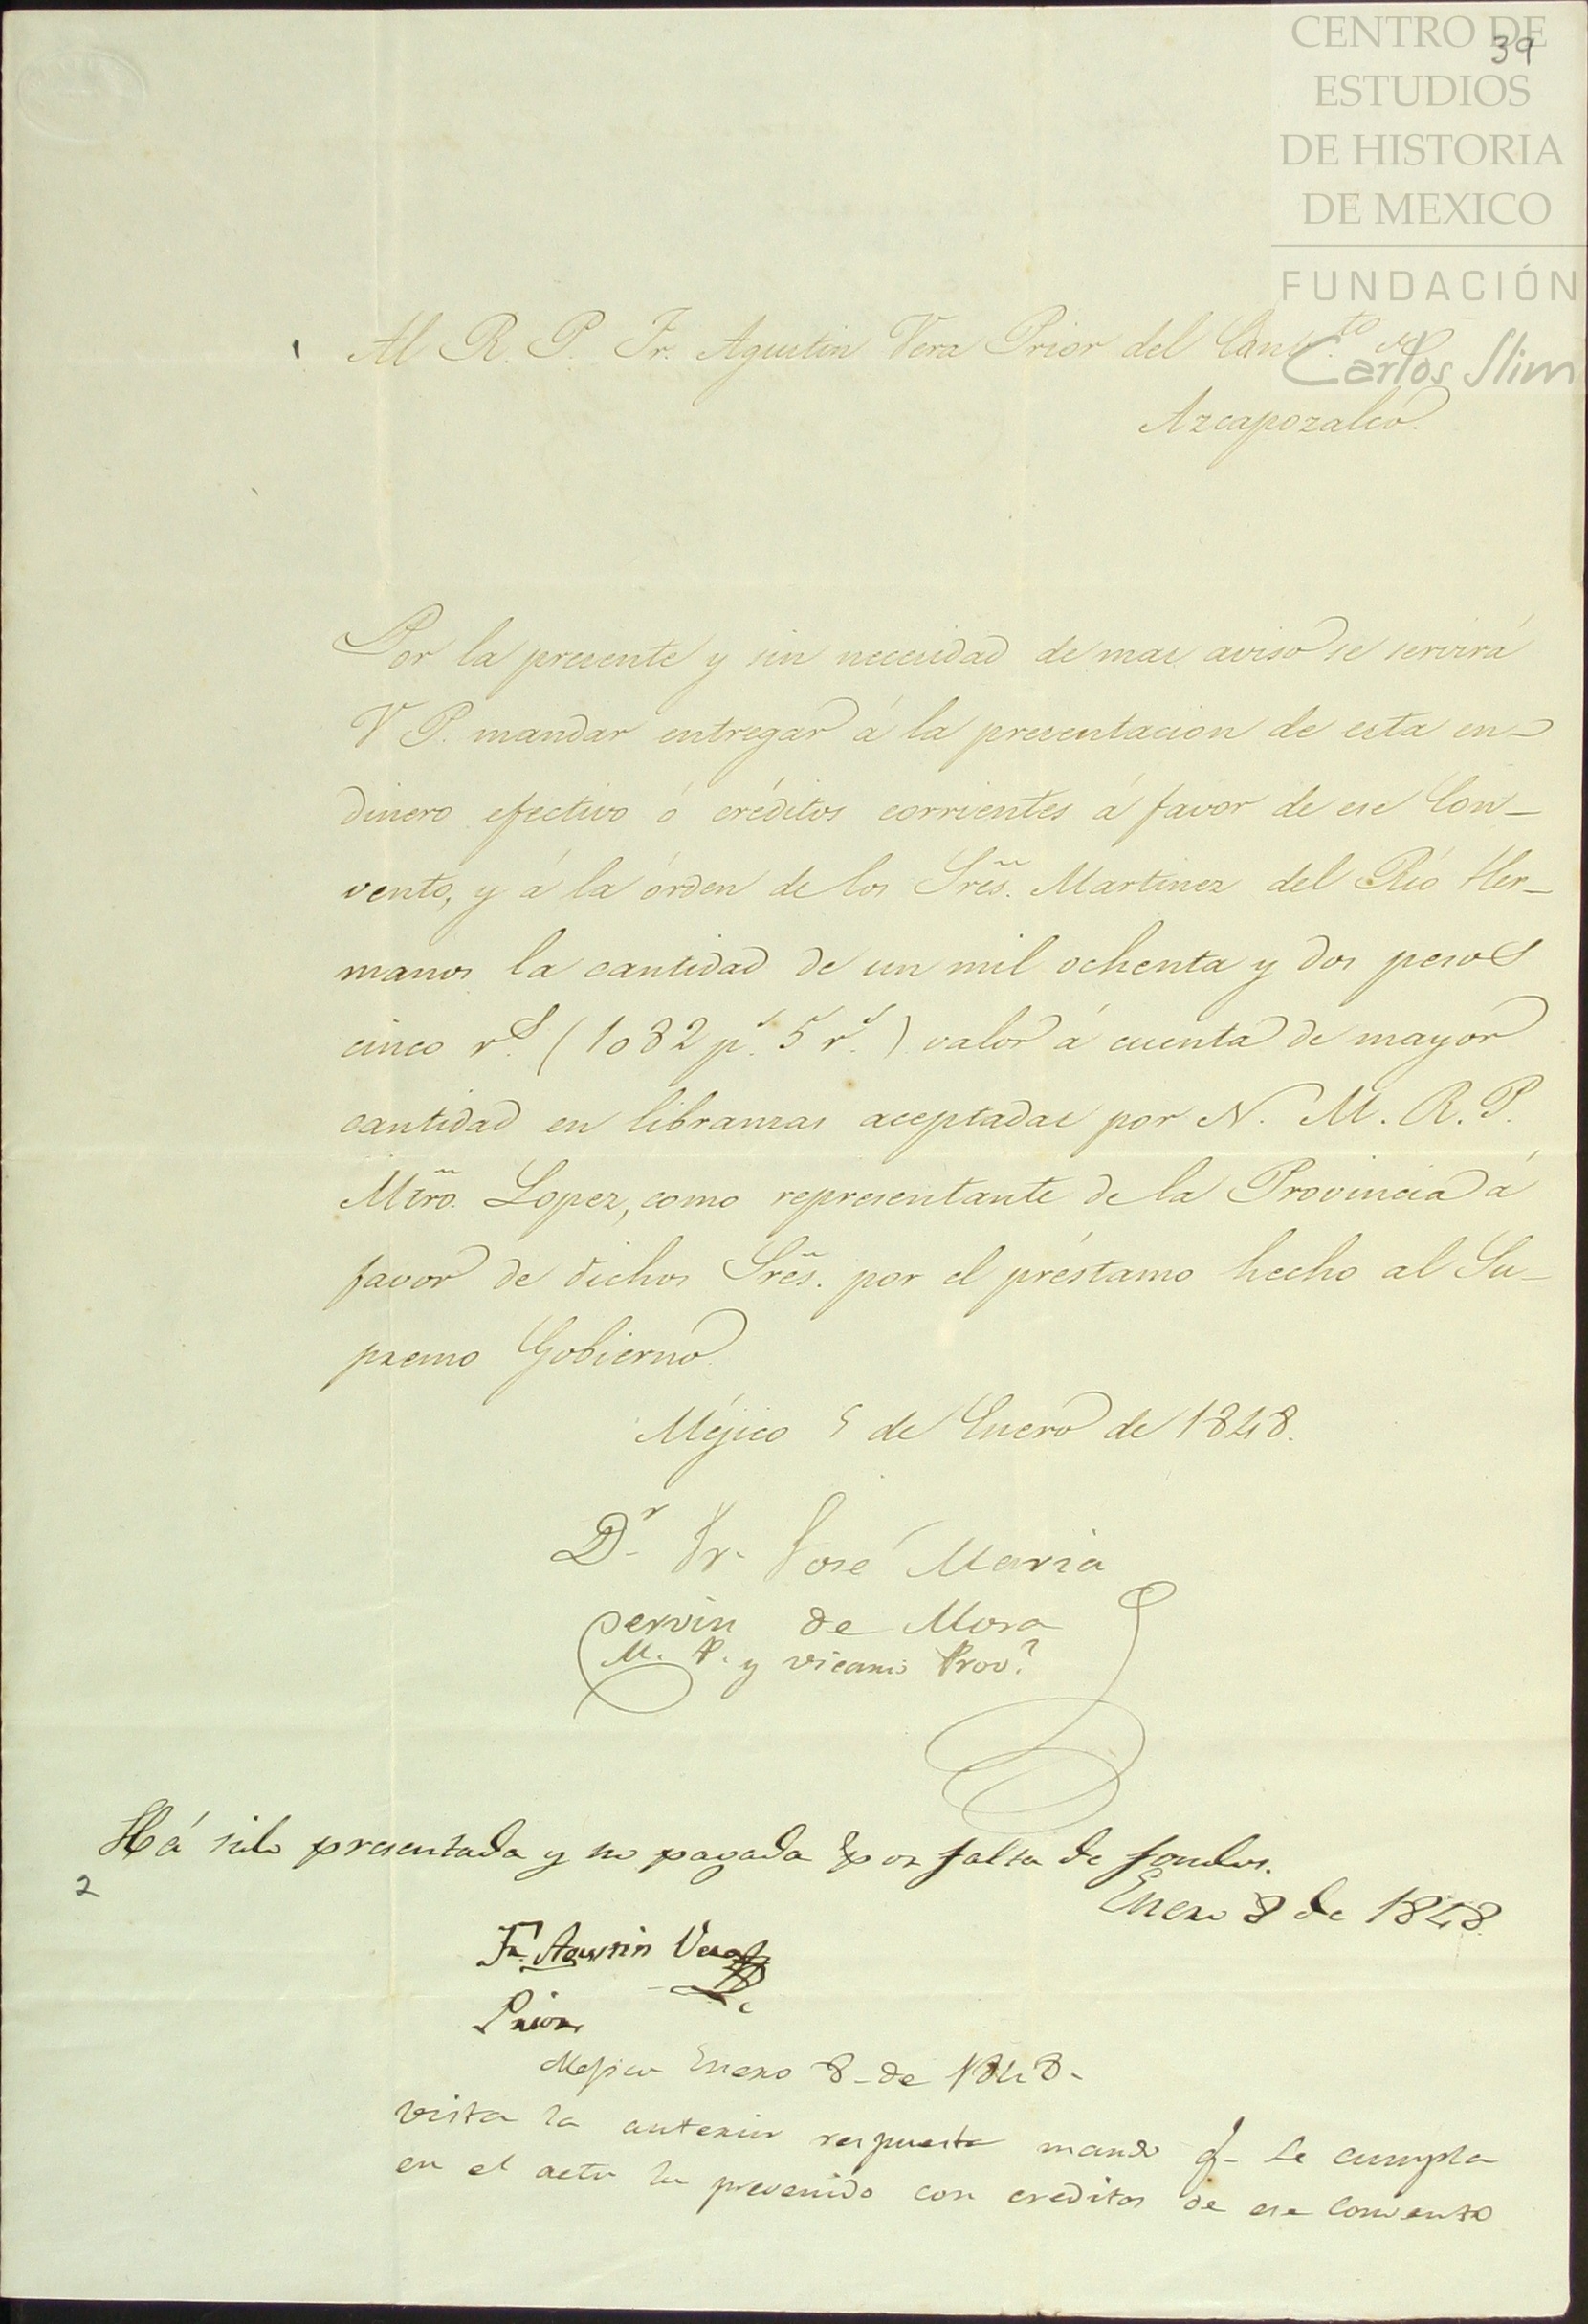 CENTRO DE
ESTUDIOS
DE HISTORIA
DE MEXICO
FUNDACIÓN
Carlos Slim
39
Al R. P. Fr. Agustin Vera Prior del Conv.to de
Azcapozalco.
Por la presente y sin necesidad de mas aviso se servirá
V P. mandar entregar á la presentacion de esta en
dinero efectivo ó créditos corrientes á favor de ese Con-
vento, y á la órden de los Sres. Martinez del Rio Her-
manos la cantidad de un mil ochenta y dos pesos
cinco r.s (1082 p.s 5 r.s) valor á cuenta de mayor
cantidad en libranzas aceptadas por N. M. R. P.
Mtro. Lopez, como representante de la Provincia á
favor de dichos Sres. por el préstamo hecho al Su-
premo Gobierno.
Méjico 5 de Enero de 1848.
D.r Fr. José Maria
Servin de Mora
M. P. y vicario Prov.l
Há sido presentada y no pagada por falta de fondos.
2
Enero 8 de 1848.
Fr. Agustin Vera
Prior
Mejico Enero 8 de 1848.
vista la anterior respuesta mando q. se cumpla
en el acto lo prevenido con creditos de ese Convento